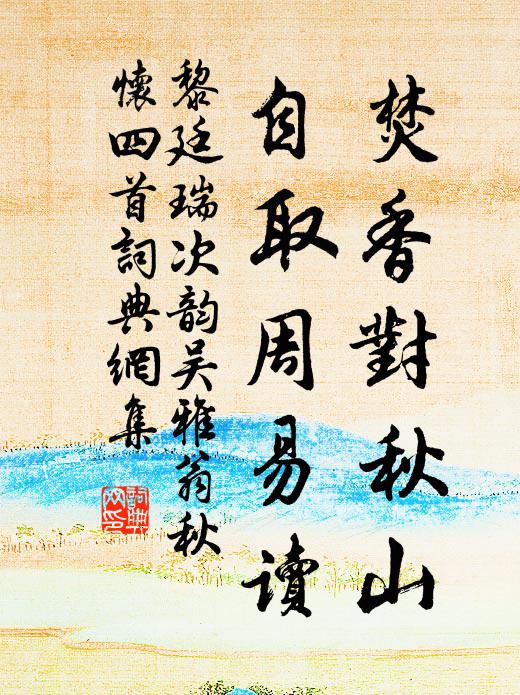 焚香對秋山
自取周易讀
黎廷瑞次韵吴雅翁秋
懷四首詞典網集
詞典网印